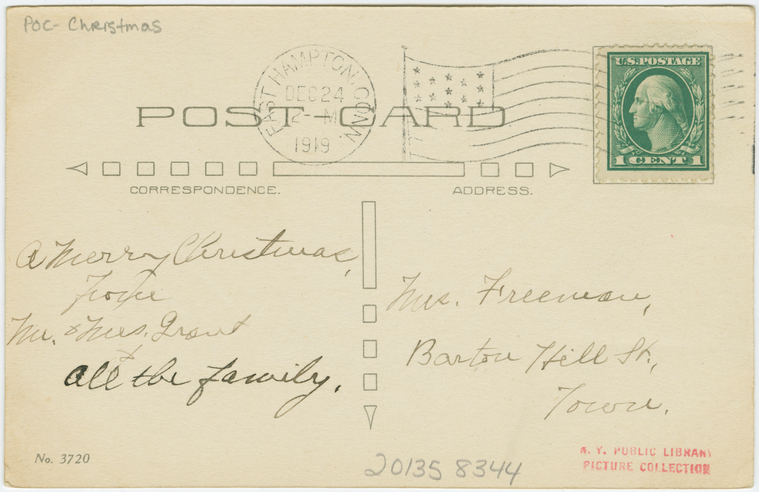 POC- Christmas
EAST HAMPTON, CONN.
DEC 24
2-M
1919
U.S. POSTAGE
1 CENT 1
POST CARD
CORRESPONDENCE.
ADDRESS.
A Merry Christmas,
from
Mr. & Mrs. Grant
&
all the family.
Mrs. Freeman,
Barton Hill St.,
Town.
No. 3720
20135 8344
N. Y. PUBLIC LIBRARY
PICTURE COLLECTION